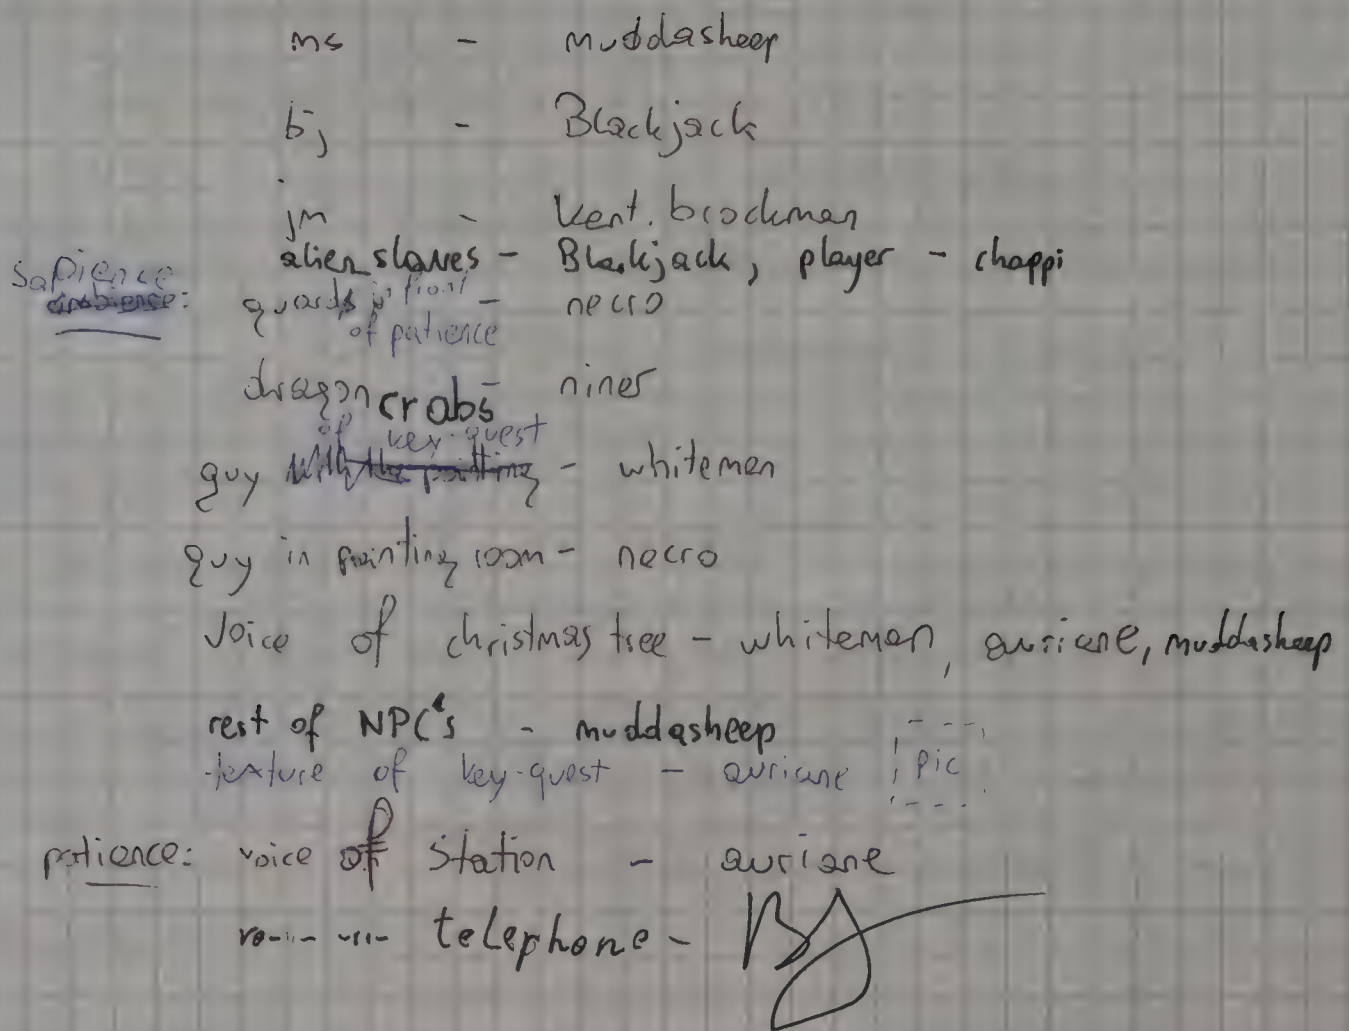 ms - muddasheep
bj - Blackjack
jm - Kent. brockman
alien slaves - Blackjack, player - chappi
Sapience: guards in front of patience - necro
dragon crabs - niner
guy of key-quest - whiteman
guy in painting room - necro
Voice of christmas tree - whiteman, auriane, muddasheep
rest of NPC's - muddasheep
texture of key-quest - auriane pic
patience: voice of Station - auriane
telephone - BJ